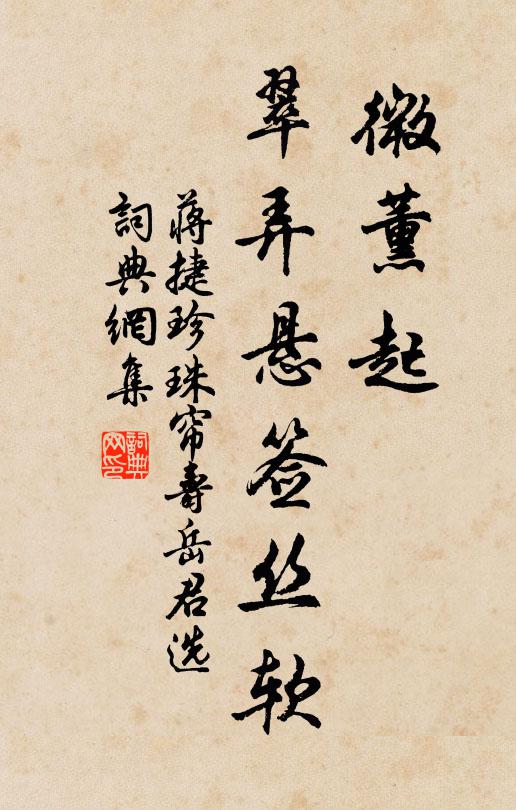 微薰起
翠弄悬签丝软
蒋捷珍珠帘寿岳君选
詞典網集
詞典
网印